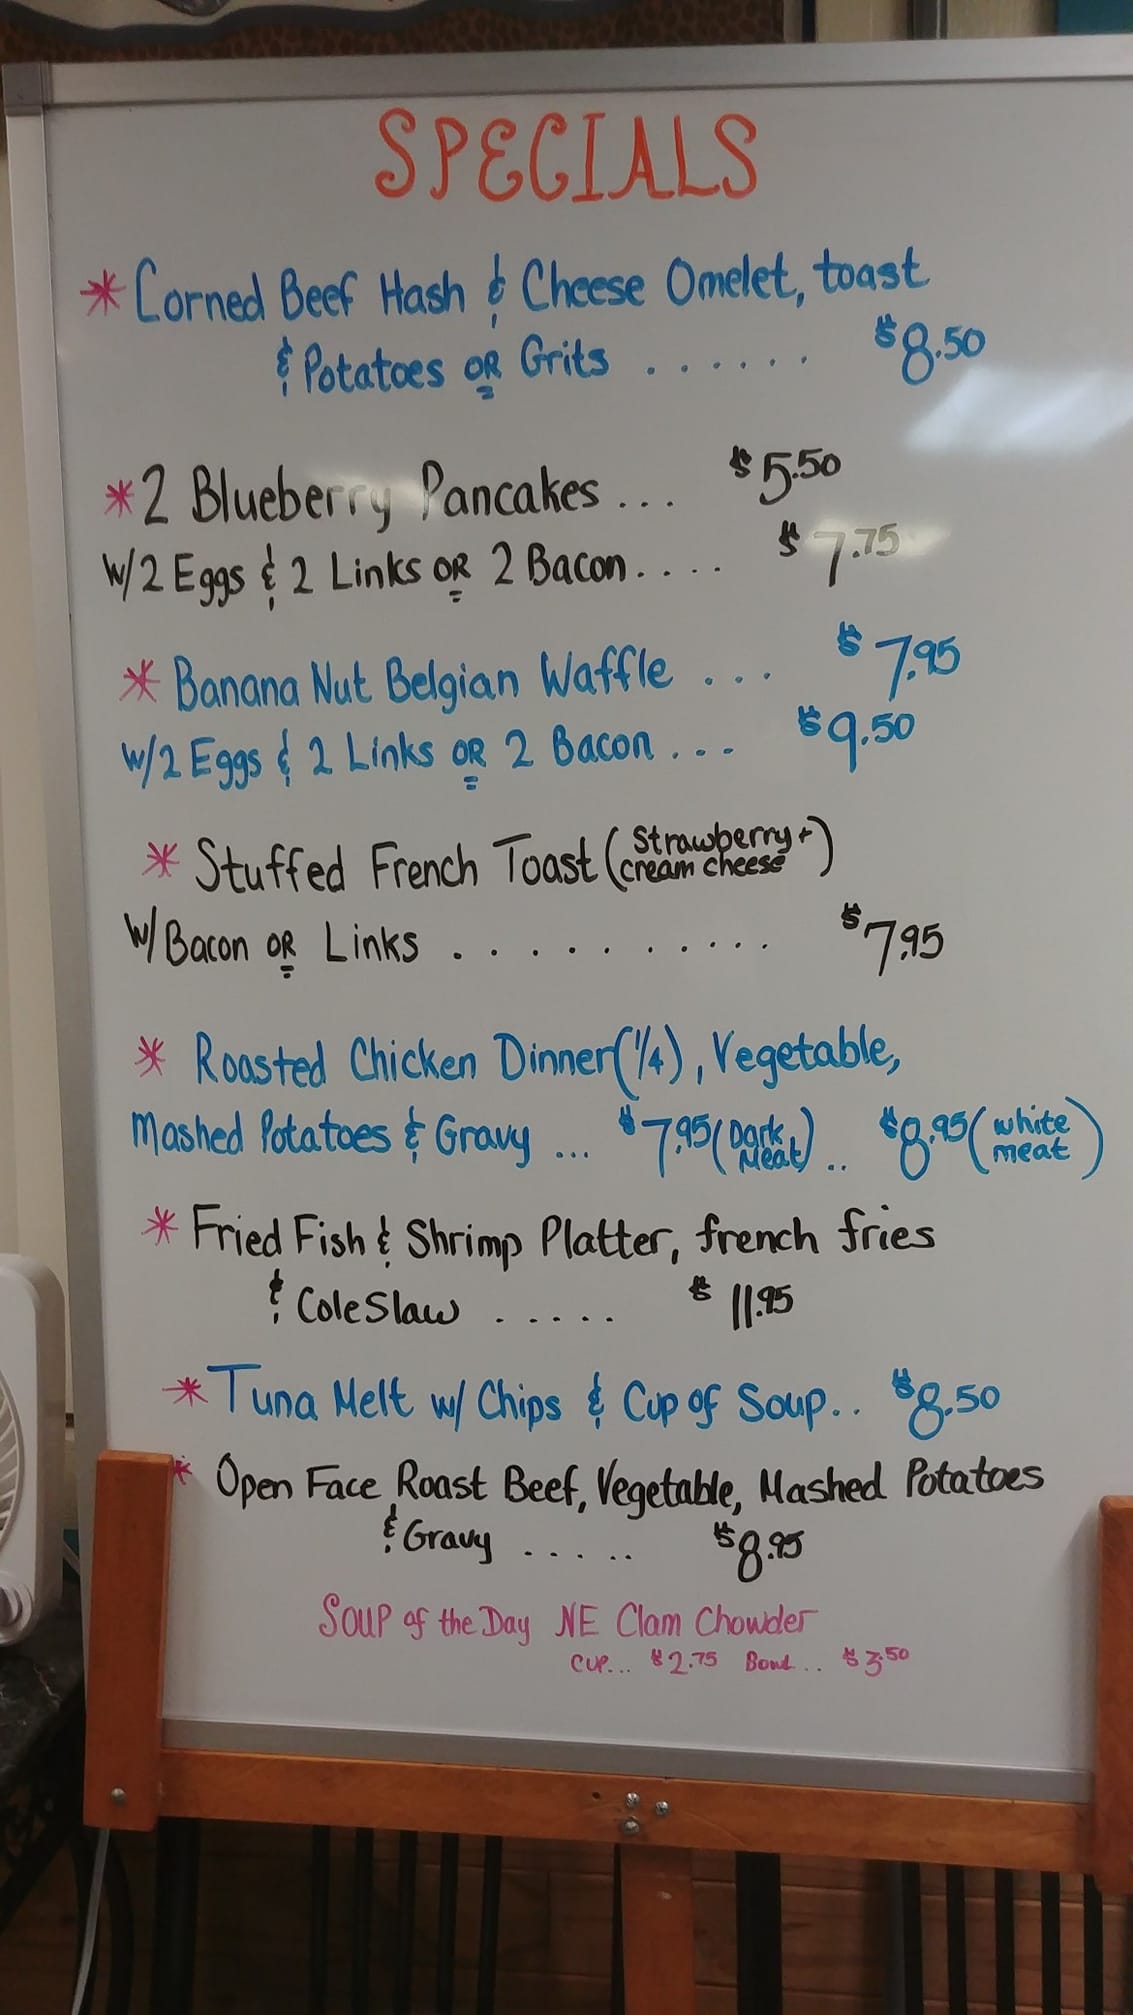 SPECIALS
* Corned Beef Hash & Cheese Omelet, toast
& Potatoes OR Grits ...... $8.50
* 2 Blueberry Pancakes ... $5.50
W/2 Eggs & 2 Links OR 2 Bacon.... $7.75
* Banana Nut Belgian Waffle ... $7.95
W/2 Eggs & 2 Links OR 2 Bacon ... $9.50
* Stuffed French Toast (Strawberry + cream cheese)
W/Bacon OR Links ........... $7.95
* Roasted Chicken Dinner(1/4), Vegetable,
Mashed Potatoes & Gravy ... $7.95 (Dark Meat) .. $8.95 (white meat)
* Fried Fish & Shrimp Platter, french fries
& ColeSlaw ..... $11.95
* Tuna Melt w/ Chips & Cup of Soup.. $8.50
* Open Face Roast Beef, Vegetable, Mashed Potatoes
& Gravy ...... $8.95
Soup of the Day NE Clam Chowder
Cup... $2.75 Bowl... $3.50